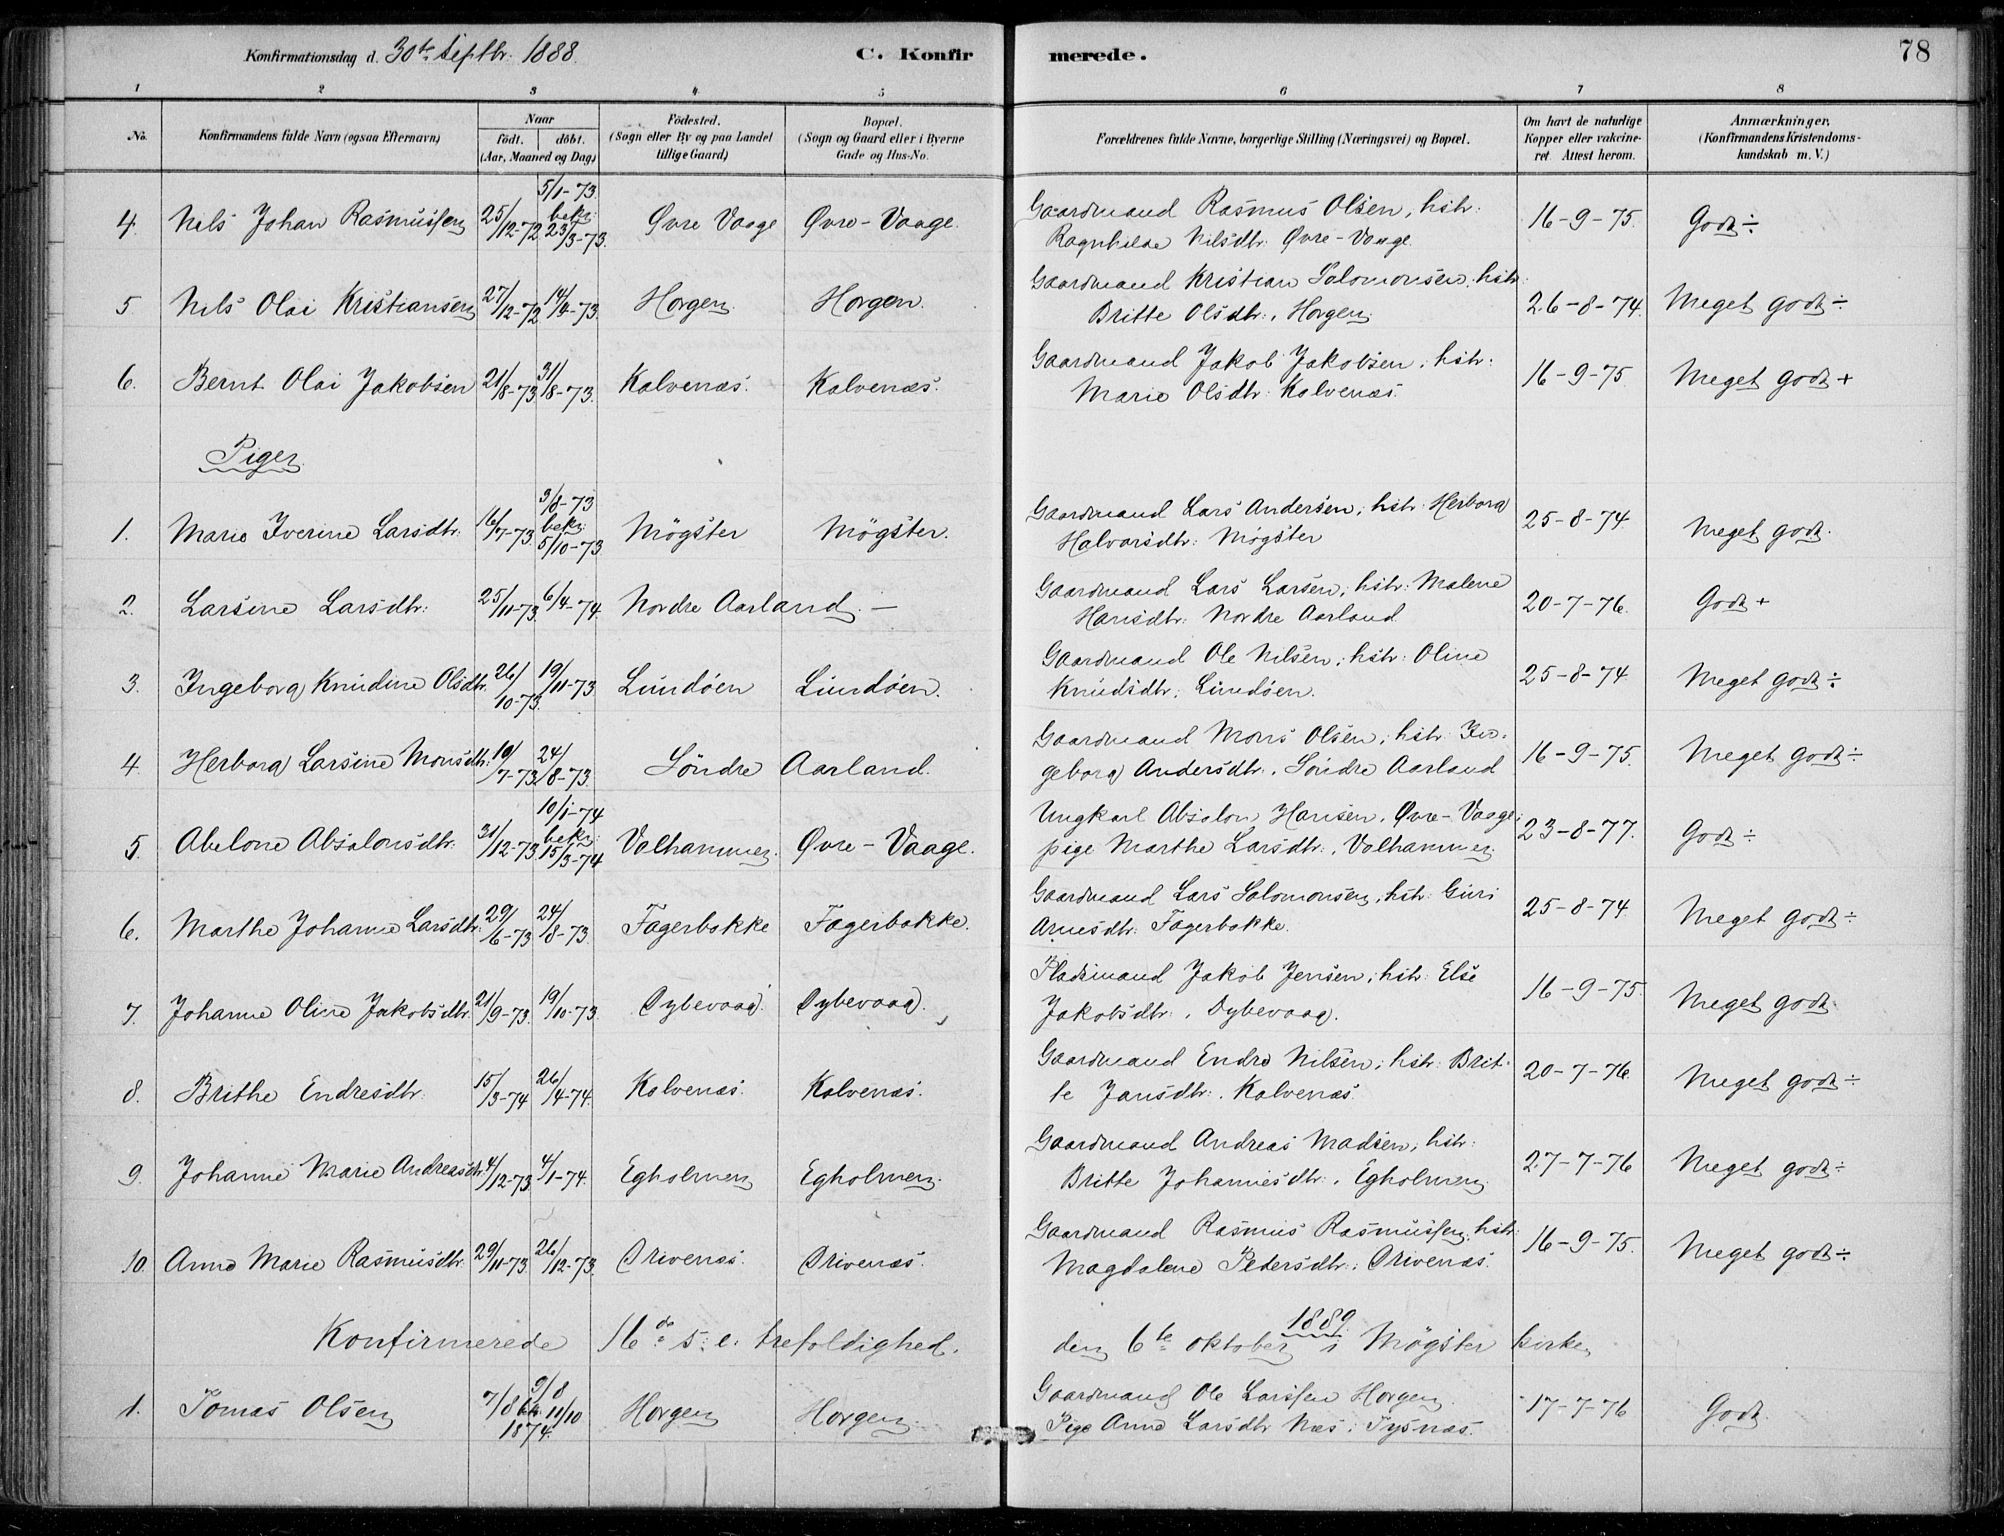 Konfirmationsdag d. 30te Septbr. 1888.
C. Konfirmerede.
78
1 2 3 4 5 6 7 8
No.
Konfirmandens fulde Navn (ogsaa Efternavn)
Naar
født. døbt.
(Aar, Maaned og Dag)
Födested.
(Sogn eller By og paa Landet
tillige Gaard)
Bopæl.
(Sogn og Gaard eller i Byerne
Gade og Hus-No.
Forældrenes fulde Navne, borgerlige Stilling (Næringsvei) og Bopæl.
Om havt de naturlige
Kopper eller vakcineret. Attest herom.
Anmærkninger.
(Konfirmandens Kristendomskundskab m. V.)
4. Nils Johan Rasmussen 25/12-72 5/1-73 bekr: 23/3-73. Øvre Vaage Øvre-Vaage. Gaardmand Rasmus Olsen, hstr:
Ragnhilde Nilsdtr: Øvre-Vaage. 16-9-75. Godt ÷
5 Nils Olai Kristiansen 27/12-72 14/4-73. Horgen. Horgen. Gaardmand Kristian Salomonsen, hstr:
Britte Olsdtr:, Horgen. 26-8-74. Meget godt ÷
6. Bernt Olai Jakobsen 21/8-73 31/8-73. Kalvenæs. Kalvenæs. Gaardmand Jakob Jakobsen, hstr:
Marie Olsdtr: Kalvenæs. 16-9-75. Meget godt +
Piger.
1. Marie Iverine Larsdtr: 16/7-73. 3/8-73 bekr: 5/10-73 Møgster Møgster. Gaardmand Lars Andersen, hstr: Herborg
Halvarsdtr: Møgster 25-8-74. Meget godt.
2. Larsine Larsdtr: 25/11-73. 6/4-74. Nordre Aarland. — Gaardmand Lars Larsen, hstr: Malene
Hansdtr: Nordre Aarland 20-7-76. Godt +
3. Ingeborg Knudine Olsdtr. 26/10-73. 19/11-73. Lundøen Lundøen. Gaardmand Ole Nilsen, hstr: Oline
Knudsdtr, Lundøen. 25-8-74. Meget godt ÷
4. Herborg Larsine Monsdtr: 19/7-73. 24/8-73. Söndre Aarland. Gaardmand Mons Olsen, hstr: Ingeborg Andersdtr:, Söndre Aarland 16-9-75. Meget godt ÷
5. Abelone Absalonsdtr. 31/12-73. 10/1-74 bekr: 15/3-74 Valhammer. Øvre-Vaage. Ungkarl Absalon Hansen, Øvre-Vaage;
pige Marthe Larsdtr:, Valhammer. 23-8-77. Godt ÷
6. Marthe Johanne Larsdtr: 29/6-73 24/8-73. Fagerbakke Fagerbakke. Gaardmand Lars Salomonsen, hstr: Guri
Arnesdtr: Fagerbakke. 25-8-74. Meget godt ÷
7. Johanne Oline Jakobsdtr. 21/9-73. 19/10-73. Dybevaag. Dybevaag. Pladsmand Jakob Jensen, hstr: Else
Jakobsdtr:, Dybevaag. 16-9-75. Meget godt
8 Brithe Endresdtr: 15/3-74 26/4-74. Kalvenæs. Kalvenæs. Gaardmand Endre Nilsen, hstr: Britte Jansdtr:, Kalvenæs. 20-7-76. Meget godt ÷
9. Johanne Marie Andreasdtr. 4/12-73 4/1-74. Egholmen Egholmen. Gaardmand Andreas Madsen, hstr:
Britte Johannesdtr:, Egholmen. 27-7-76 Meget godt ÷
10. Anne Marie Rasmusdtr. 29/11-73. 26/12-73. Drivenæs. Drivenæs. Gaardmand Rasmus Rasmussen, hstr:
Magdalene Pedersdtr:, Drivenæs. 16-9-75. Meget godt ÷
Konfirmerede 16de s. e. trefoldighed. den 6te oktober 1889 i Møgster kirke.
1. Tomas Olsen 7/8 9/8 11/10 1874. Horgen Horgen. Gaardmand Ole Larssen Horgen.
Pige Anne Larsdtr Næs, Tysnæs. 17-7-76 Godt.